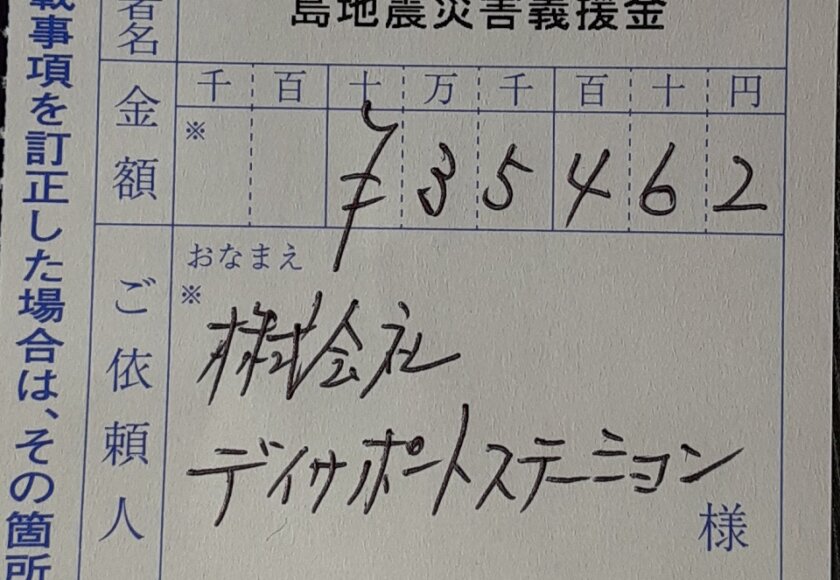 載事項を訂正した場合は、その箇所
者名
島地震災害義援金
金額
千 百 十 万 千 百 十 円
※
¥35462
ご依頼人
おなまえ
※
株式会社
デイサポートステーション
様